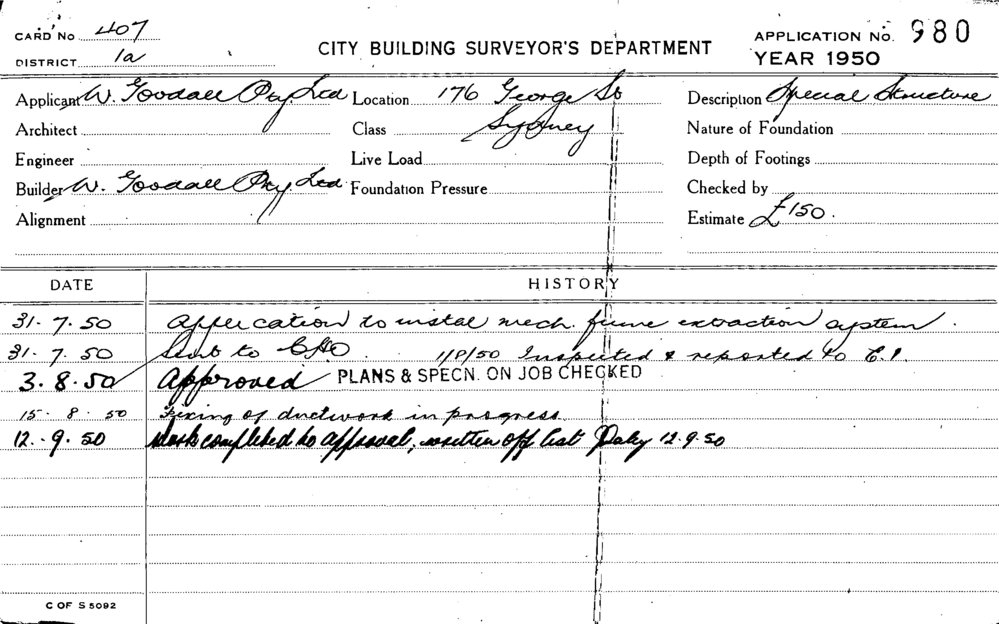 CARD No 407
DISTRICT 1a
CITY BUILDING SURVEYOR'S DEPARTMENT
APPLICATION No. 980
YEAR 1950
Applicant W. Goodall Pty Ltd Location 176 George St Description Special Structure
Architect Class Sydney Nature of Foundation
Engineer Live Load Depth of Footings
Builder W. Goodall Pty Ltd Foundation Pressure Checked by
Alignment Estimate £150.
DATE HISTORY
31.7.50 Application to instal mech. fume extraction system.
31.7.50 Sent to CHO. 1/8/50 Inspected & reported to C.I.
3.8.50 Approved PLANS & SPECN. ON JOB CHECKED
15.8.50 Fixing of ductwork in progress.
12.9.50 Work completed to approval, written off list 12.9.50
C OF S 5092